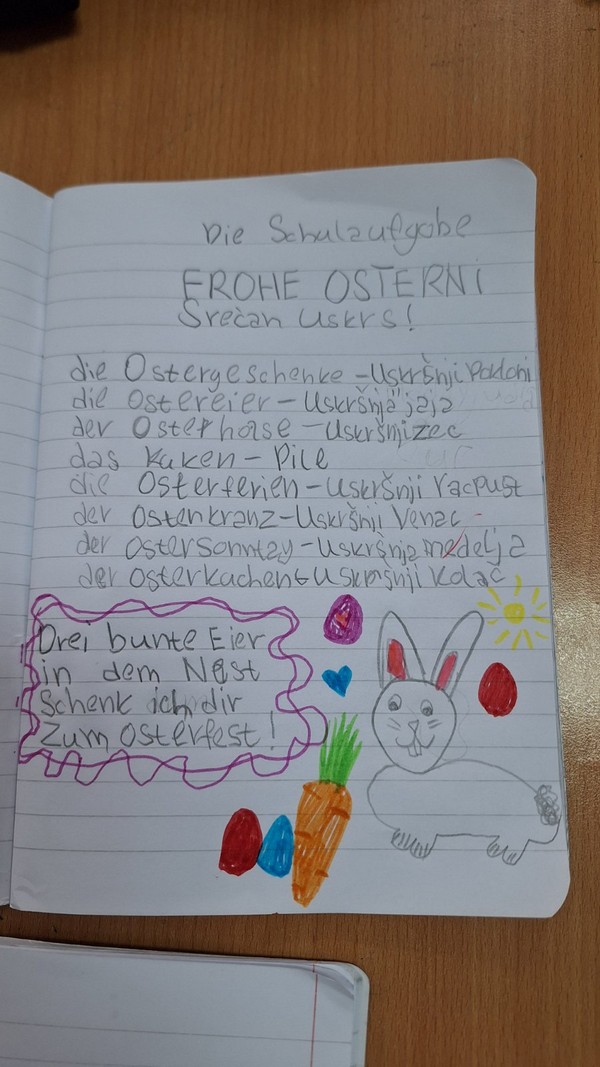 Die Schulaufgabe
FROHE OSTERN!
Srećan Uskrs!
die Ostergeschenke - Uskršnji pokloni
die Ostereier - Uskršnja jaja
der Osterhase - Uskršnji zec
das Kuken - Pile
die Osterferien - Uskršnji racpust
der Ostenkranz - Uskršnji Venac
der Ostersonntay - Uskršnja nedelja
der Osterkuchen - Uskršnji kolač
Drei bunte Eier
in dem Nest
Schenk ich dir
Zum Osterfest!